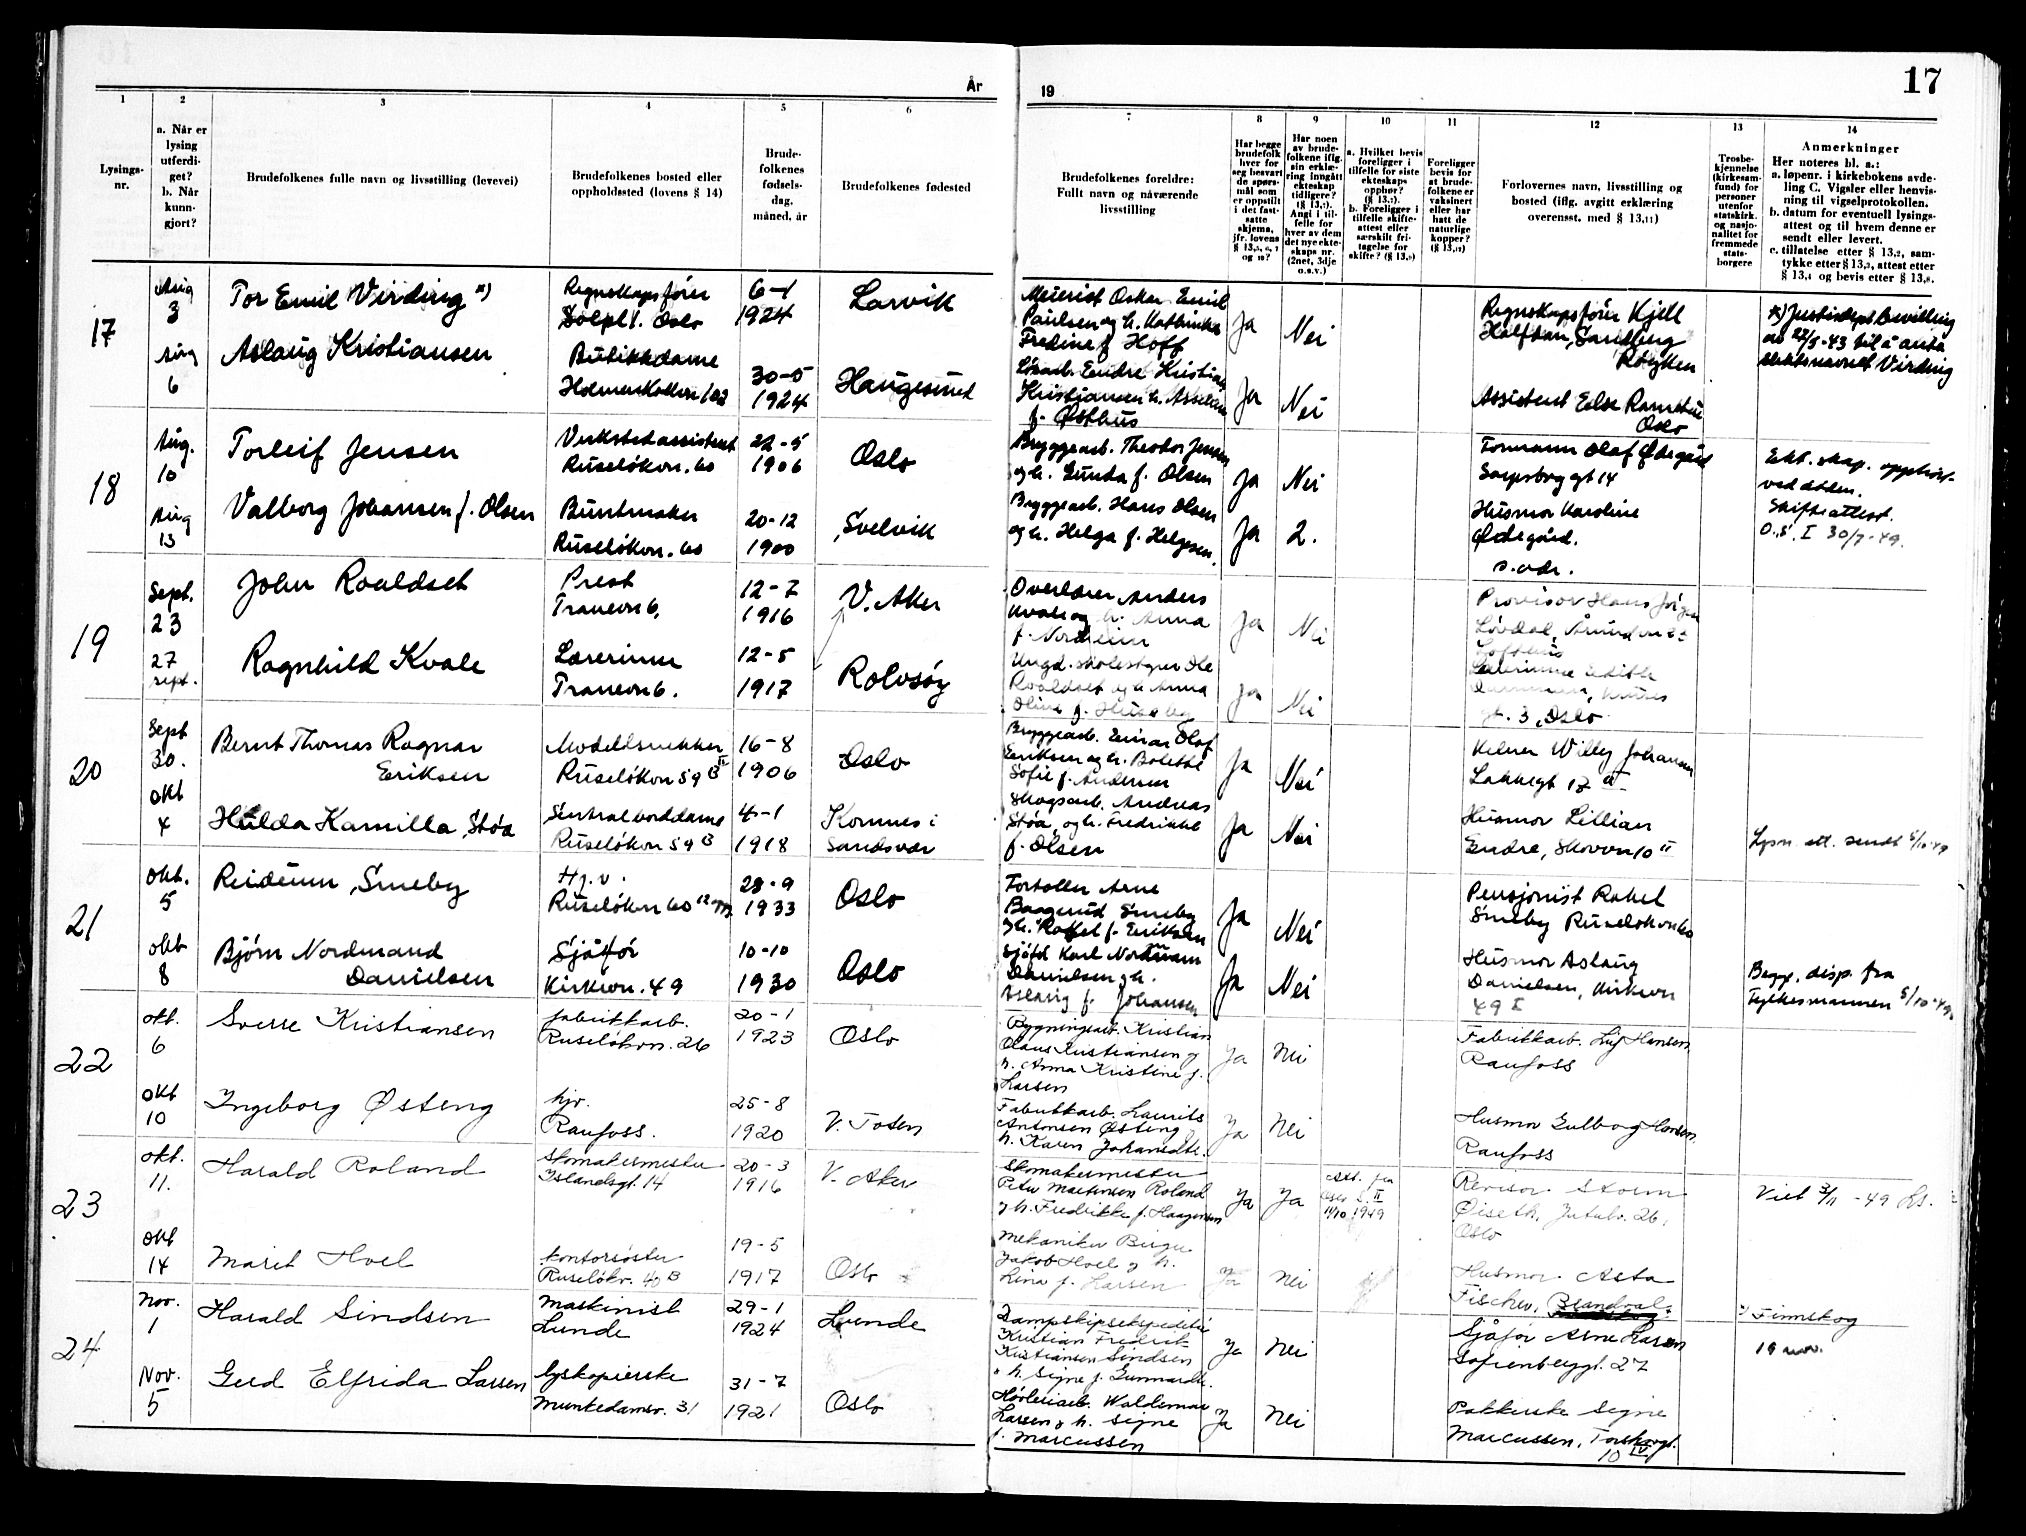 År
19
17
1
2
3
4
5
6
7
8
9
10
11
12
13
14
Lysings-
nr.
a. Når er
lysing
utferdi-
get?
b. Når
kunn-
gjort?
Brudefolkenes fulle navn og livsstilling (levevei)
Brudefolkenes bosted eller
oppholdssted (lovens § 14)
Brude-
folkenes
fødsels-
dag,
måned, år
Brudefolkenes fødested
Brudefolkenes foreldre:
Fullt navn og nåværende
livsstilling
Har begge
brudefolk
hver for
seg besvart
de spørs-
mål som
er oppstilt
i det fast-
satte
skjema,
jfr. lovens
§ 13,5, 6, 7
og 10?
Har noen
av brude-
folkene iflg.
sin erklæ-
ring inngått
ekteskap
tidligere?
(§ 13,7).
Angi i til-
felle for
hver av dem
det nye ekte-
skaps nr.
(2net, 3dje
o.s.v.)
a. Hvilket bevis
foreligger i
tilfelle for siste
ekteskaps
opphør?
(§ 13,7).
b. Foreligger i
tilfelle skifte-
attest eller
særskilt fri-
tagelse for
skifte? (§ 13,9)
Foreligger
bevis for
at brude-
folkene er
vaksinert
eller har
hatt de
naturlige
kopper?
(§ 13,12)
Forlovernes navn, livsstilling og
bosted (iflg. avgitt erklæring
overensst. med § 13,11)
Trosbe-
kjennelse
(kirkesam-
fund) for
personer
utenfor
statskirk.
og nasjo-
nalitet for
fremmede
stats-
borgere
Anmerkninger
Her noteres bl. a.:
a. løpenr. i kirkebokens avde-
ling C. Vigsler eller henvis-
ning til vigselprotokollen.
b. datum for eventuell lysings-
attest og til hvem denne er
sendt eller levert.
c. tillatelse etter § 13,2, sam-
tykke etter § 13,3, attest etter
§ 13,4 og bevis etter § 13,8.
17
Aug
3
Tor Emil Virding x)
Regnskapsfører
Solpl. 1. Oslo
6-1
1924
Larvik
Meierist Oskar Emil
Paulsen og h. Kathinka
Fredine f. Hoff
Ja
Nei
Regnskapsfører Kjell
Halfdan, Sandberg
Røyken
x) Justisdept. bevilling
av 22/5-43 til å anta
slektsnavnet Virding
Aug
6
Aslaug Kristiansen
Butikkdame
Holmenkollvn 102
30-5
1924
Haugesund
Endre Kristian
Kristiansen h. Asseline
f. Østhus
Ja
Nei
Assistent Else Ramstad
Oslo
18
Aug.
10
Torleif Jensen
Verkstedassistent
Ruseløkvn. 60
22-5
1906
Oslo
Bryggearb. Theodor Jensen
og h. Gunda f. Olsen
Ja
Nei
Formann Olaf Ødegård
Sarpsborg gt 14
Ekt. skap. oppløst
ved døden.
Skifteattest.
O.S. I 30/7-49.
Aug
13
Valborg Johansen f. Olsen
Buntmaker
Ruseløkvn. 60
20-12
1900
Svelvik
Bryggearb. Hans Olsen
og h. Helga f. Helgesen.
Ja
2.
Husmor Karoline
Ødegård.
s. adr.
19
Sept.
23
John Roaldset
Prest
Tranevn 6.
12-7
1916
V. Aker
Overlærer Anders
Kvale og h. Anna
f. Nordheim
Ja
Nei
Provisor Hans Jørgen
Løvdal,
Lofthus
27
sept.
Ragnhild Kvale
Lærerinne
Tranevn 6.
12-5
1917
Rolvsøy
Ungd. skolestyrer Ole
Roaldset og h. Anna
Oline f. Huseby
Ja
Nei
Lærerinne Edith
gt. 3, Oslo
20
Sept
30.
Bernt Thomas Ragnar
Eriksen
Modellsnekker
Ruseløkvn 59 B II
16-8
1906
Oslo
Bryggearb. Einar Olaf
Eriksen og h. Bolette
Sofie f. Andersen
Ja
Nei
Kelner Willy Johansen
Lakkegt 18 a
Okt
4
Hulda Kamilla, Støa
Sentralborddame
Ruseløkvn 59 B
4-1
1918
Komnes i
Sandsvær
Skogsarb. Andreas
Støa, og h. Fredrikke
f. Olsen
Ja
Nei
Husmor Lillian
Endre, Skovvn 10 II
Lysn. att. sendt 5/10-49
21
Okt.
5
Reidunn, Smeby
Hj. v.
Ruseløkvn 60
28-9
1933
Oslo
Fortoller Arne
Baagerud Smeby
og h. Rakel f. Eriksen
Ja
Nei
Pensjonist Rakel
Smeby Ruseløkvn 60
Okt
8
Bjørn Nordmand
Danielsen
Sjåfør
Kirkevn. 49
10-10
1930
Oslo
Sjåfør Karl Nordmann
Danielsen og h.
Aslaug f. Johansen
Ja
Nei
Husmor Aslaug
Danielsen, Kirkevn
49 I
Begg. disp. fra
Fylkesmannen 5/10-49.
22
okt.
6
Sverre Kristiansen
fabrikkarb.
Ruseløkvn. 26
20-1
1923
Oslo
Bygningsarb. Kristian
Olaus Kristiansen og
h. Anna Kristine f.
Larsen
Ja
Nei
Fabrikkarb. Leif Hansen
Raufoss
Okt
10
Ingeborg Østeng
hjv.
Raufoss.
25-8
1920
V. Toten
Fabrikkarb. Laurits
Antonsen Østeng
h. Karen Johansdtr.
Ja
Nei
Husmor Gulborg Hansen
Raufoss
23
okt.
11.
Harald Roland
Skomakermester
Islandsgt. 14
20-3
1916
V. Aker
Skomakermester
Peter Martinsen Roland
og h. Fredrikke f. Haagensen
Ja
Ja
Att. fra
Oslo S. II
11/10 1949
Revisor Storm
Øiseth, Jutulv. 26,
Oslo
Viet 3/11-49
okt
14
Marit Hoel
Kontorsøster
Ruseløkv. 40 B
19-5
1917
Oslo
Mekaniker Birger
Jakob Hoel og h.
Lina f. Larsen
Ja
Nei
Husmor Asta
Fischer, Brandval.
Finnskog
24
Nov.
1
Harald Sindsen
Maskinist
Lunde
29-1
1924
Lunde
Dampskipsekspeditør
Kristian Fredrik
Kristiansen Sindsen
h. Signe f. Gunnardtr.
Ja
Nei
Sjåfør Arne Larsen
Sofienberggt. 27
19 nov.
Nov.
5
Gerd Elfrida Larsen
lyskopierske
Munkedamsv. 31
31-7
1921
Oslo
Høvleriarb. Waldemar
Larsen og h. Signe
f. Marcussen
Ja
Nei
Pakkerske Signe
Marcussen, Torshovgt.
10 IV